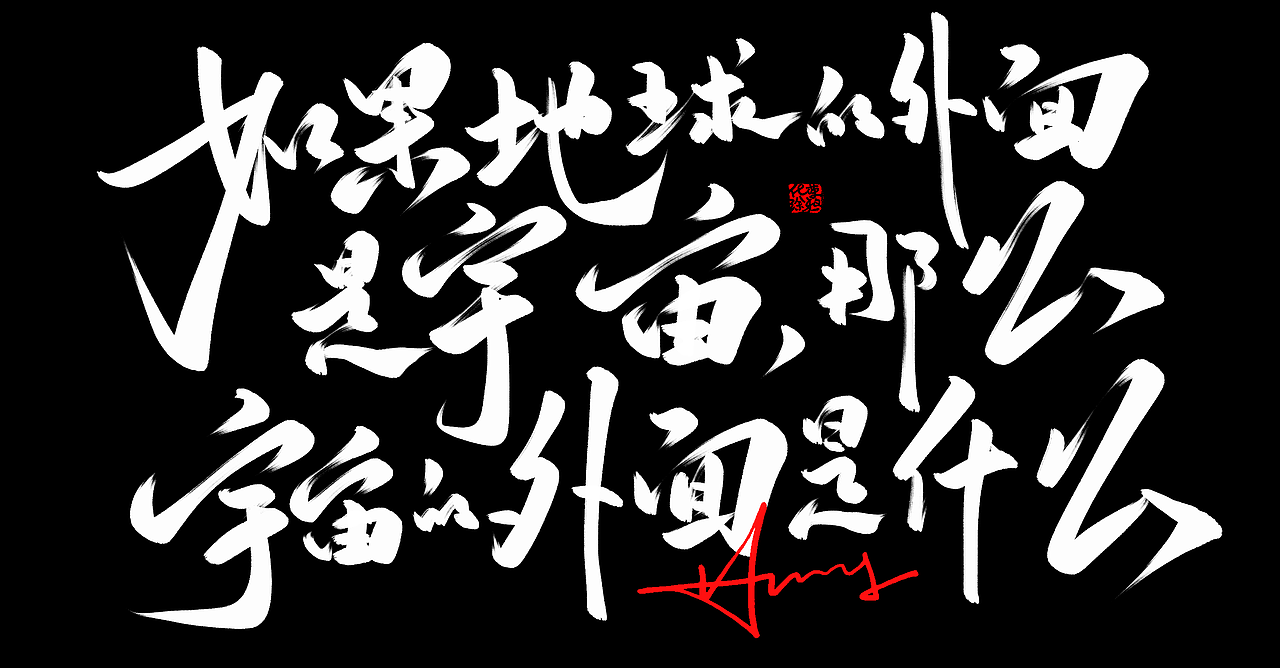 如果地球的外面
是宇宙,那么
宇宙的外面是什么
Amy